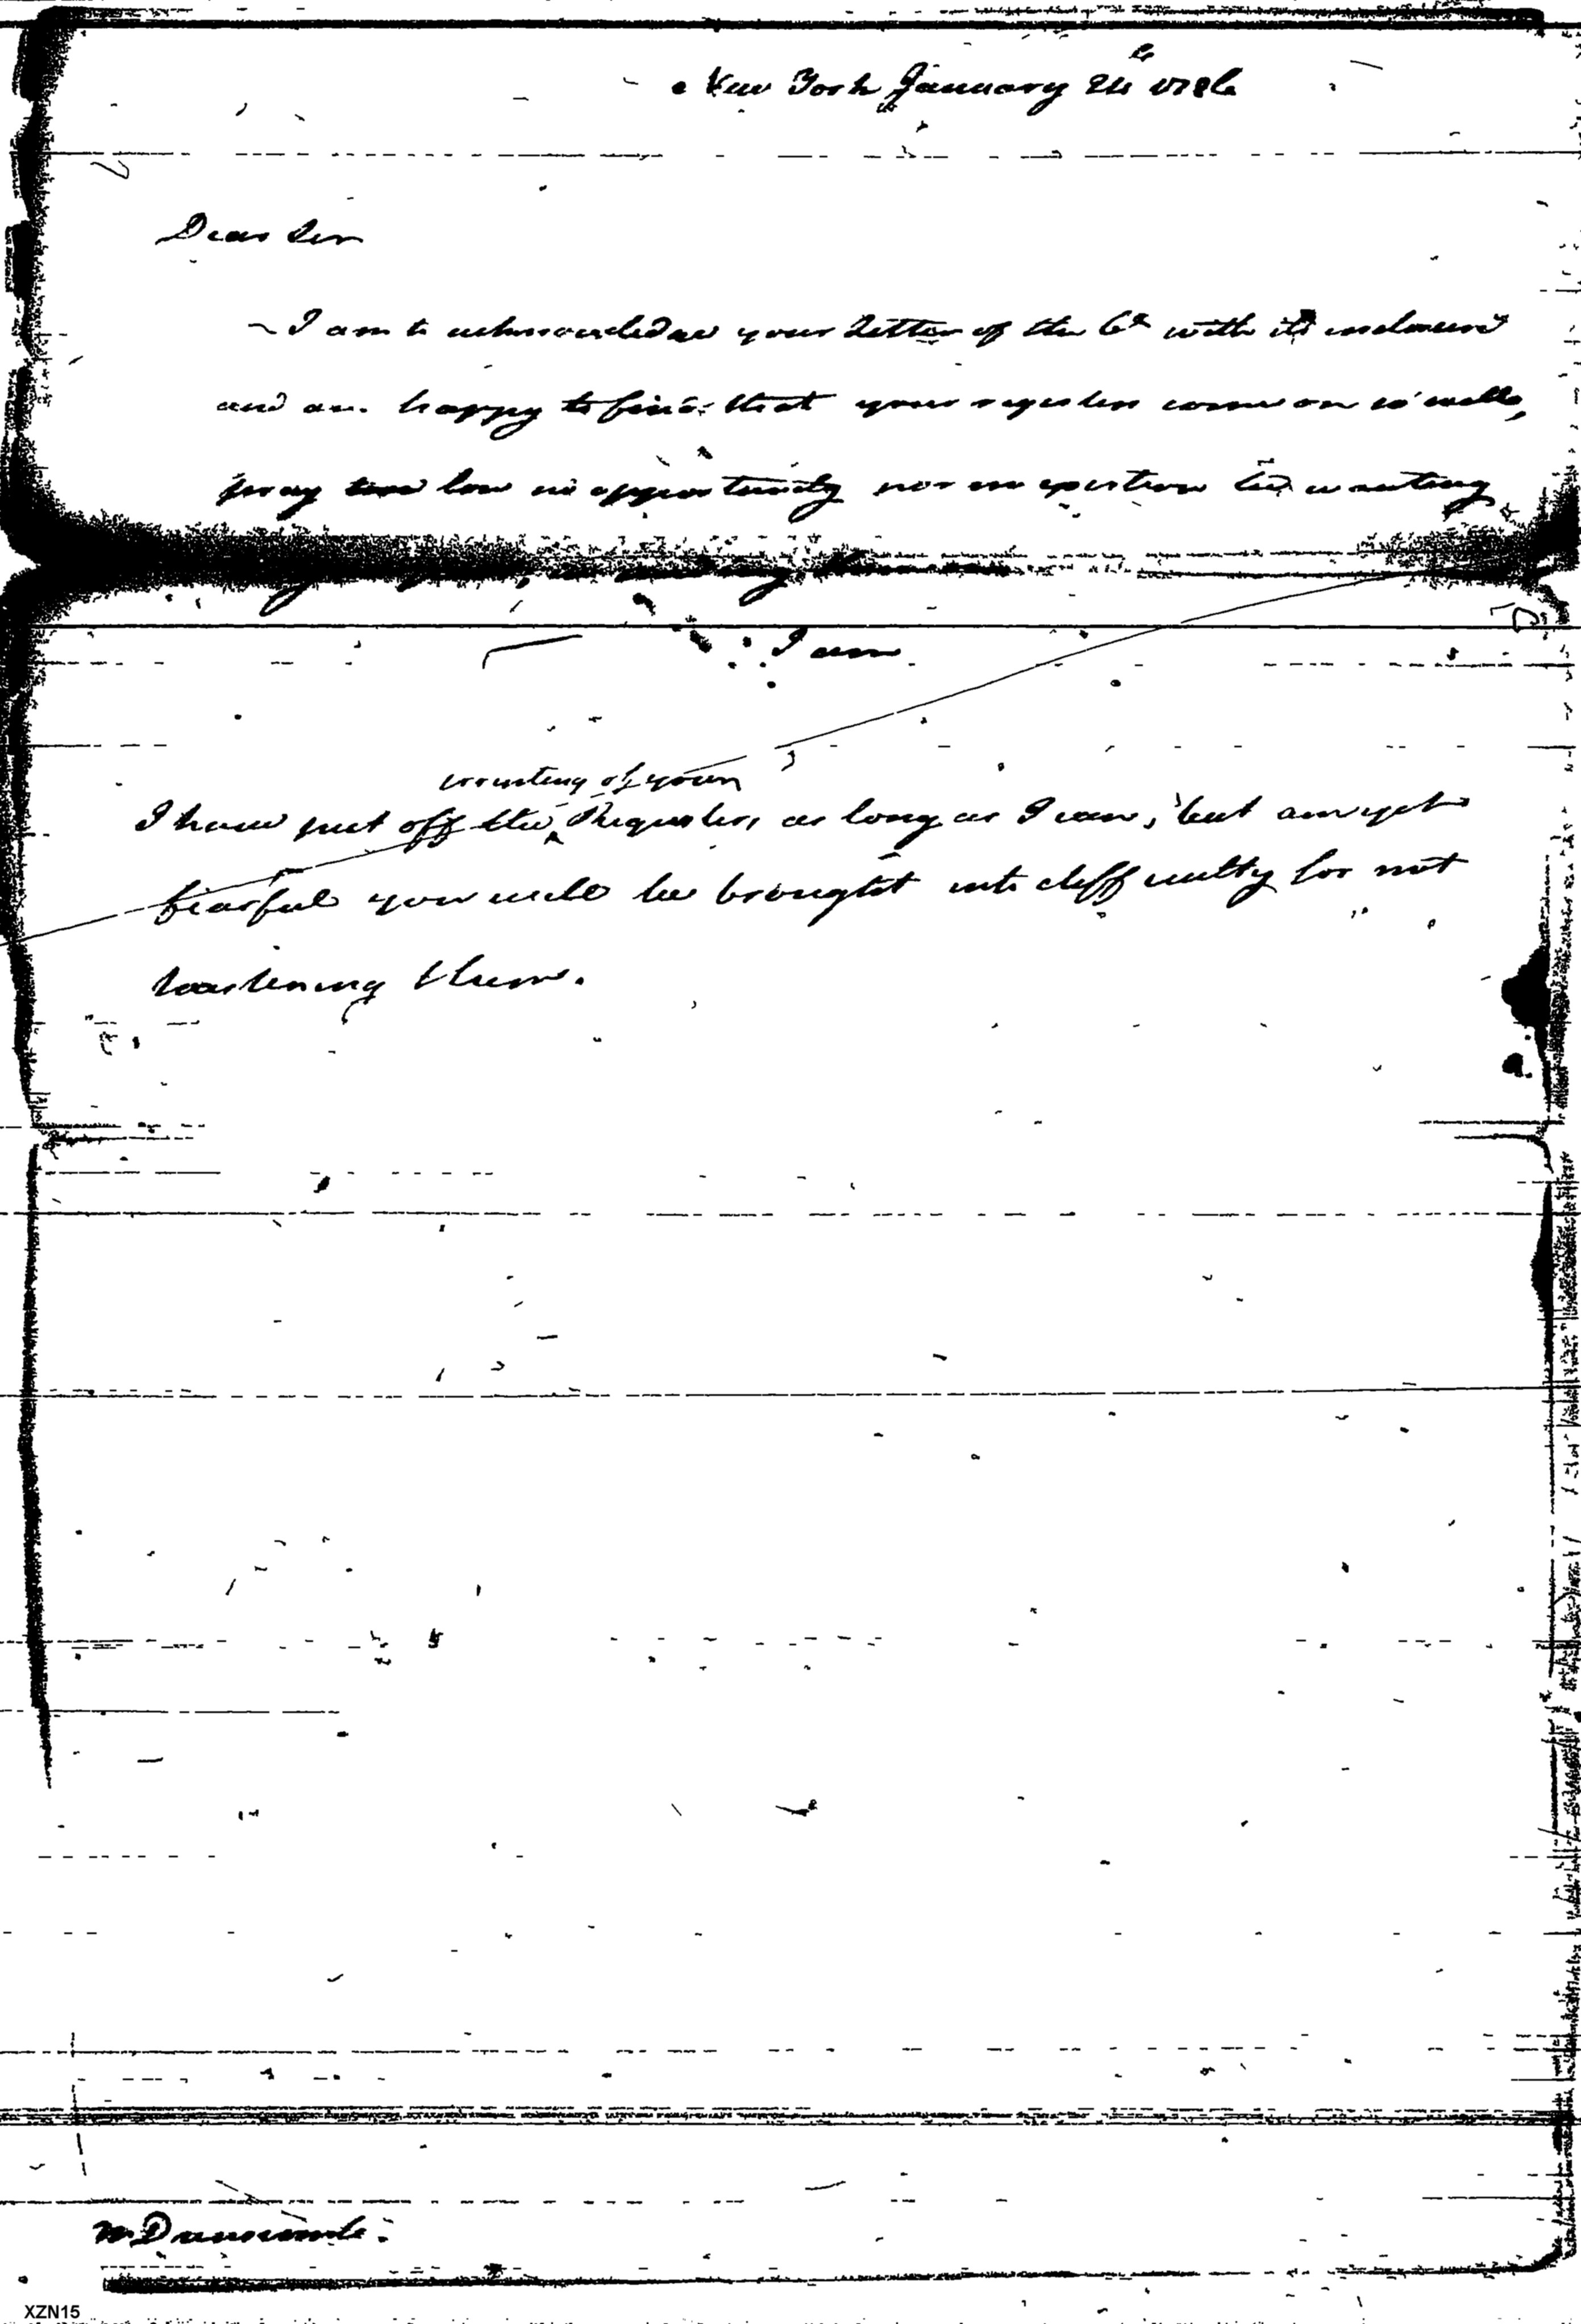 New York January 24 1786
Dear Sir
I am to acknowledge your Letter of the 6th with its inclosure
and am happy to find that your registers come on so well,
pray lose no opportunity nor no exertion be wanting
I am
wanting of your
I have put off the Registers, as long as I can, but am yet
fearful you will be brought into difficulty for not
hastening them.
Mr Dunscomb.
XZN15